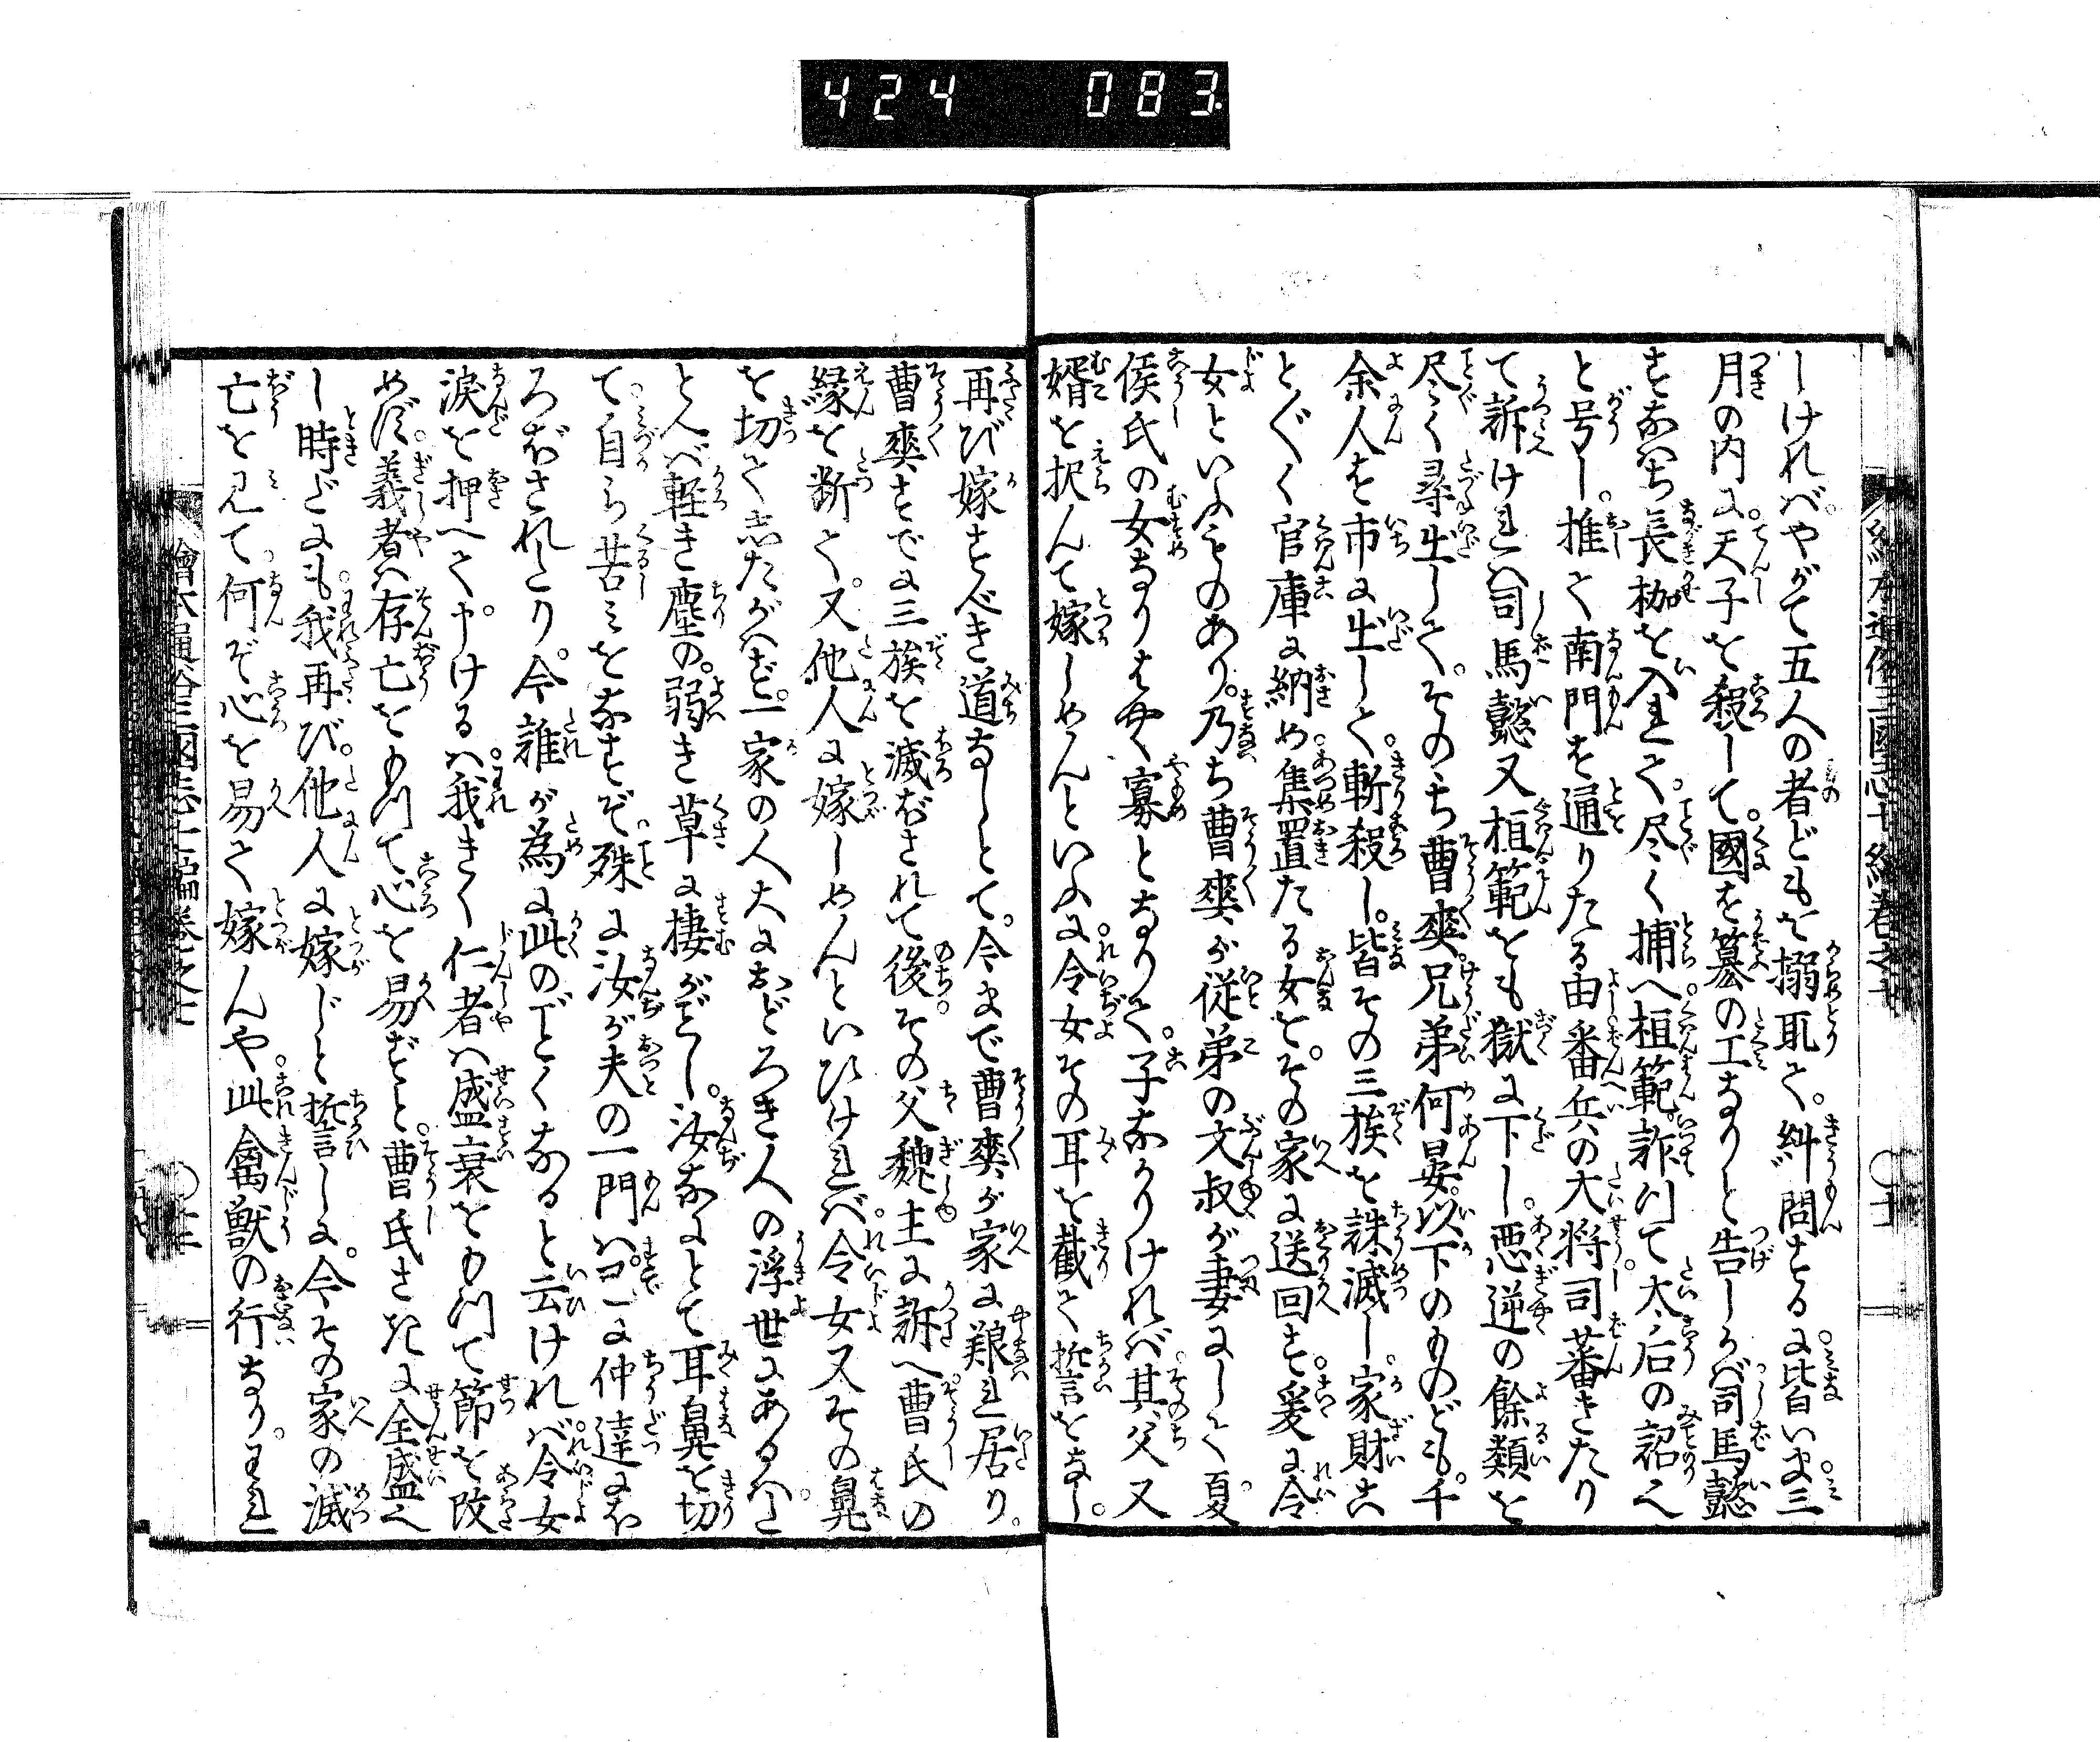 424 083
しければやがて五人の者どもを搦取て。糾問するに皆いま三
月の内に天子を殺して。國を簒の工なりと告しかば司馬懿
すなはち長枷を入れて。尽く捕へ桓範詐つて太后の詔へ
と号し。推て南門を通りたる由番兵の大将司蕃きたり
て訴ければ司馬懿又桓範をも獄に下し。悪逆の餘類を
尽く尋出して。そのち曹爽兄弟何晏以下のものども。千
余人を市に出して斬殺し。皆その三族を誅滅し家財こ
とぐく官庫に納め集置たる女を。その家に送回す。爰に令
女といふものあり。乃ち曹爽が従弟の文叔が妻にして夏
侯氏の女なりはやく寡となりて。子なかりければ其父又
婿を択んて嫁しめんといふに令女その耳を截て誓をなし。
再び嫁すべき道なしとて。今まで曹爽が家に艱れ居り。
曹爽すでに三族を滅ぼされて後。その父魏主に訴へ曹氏の
縁を断て。又他人に嫁しめんといひければ令女又その鼻
を切てしたがはず。一家の人大におどろき人の浮世にあるは
とへば軽き塵の。弱き草に棲がごとし。汝なにとて耳鼻を切
て。自ら苦みをなすぞ。殊に汝が夫の一門は已に仲達にほ
ろぼされたり。今誰が為に此のごとくなると云ければ令女
淚を押へて申けるは我きく仁者は盛衰をもつて節を改
めず。義者は存亡をもつて心を易ずと。曹氏さきに全盛へ
し時だにも。我再び。他人に嫁じと誓しに。今その家の滅
亡を見て。何ぞ心を易て嫁んや此禽獣の行なり。われ
繪本通俗三國志七編巻之七